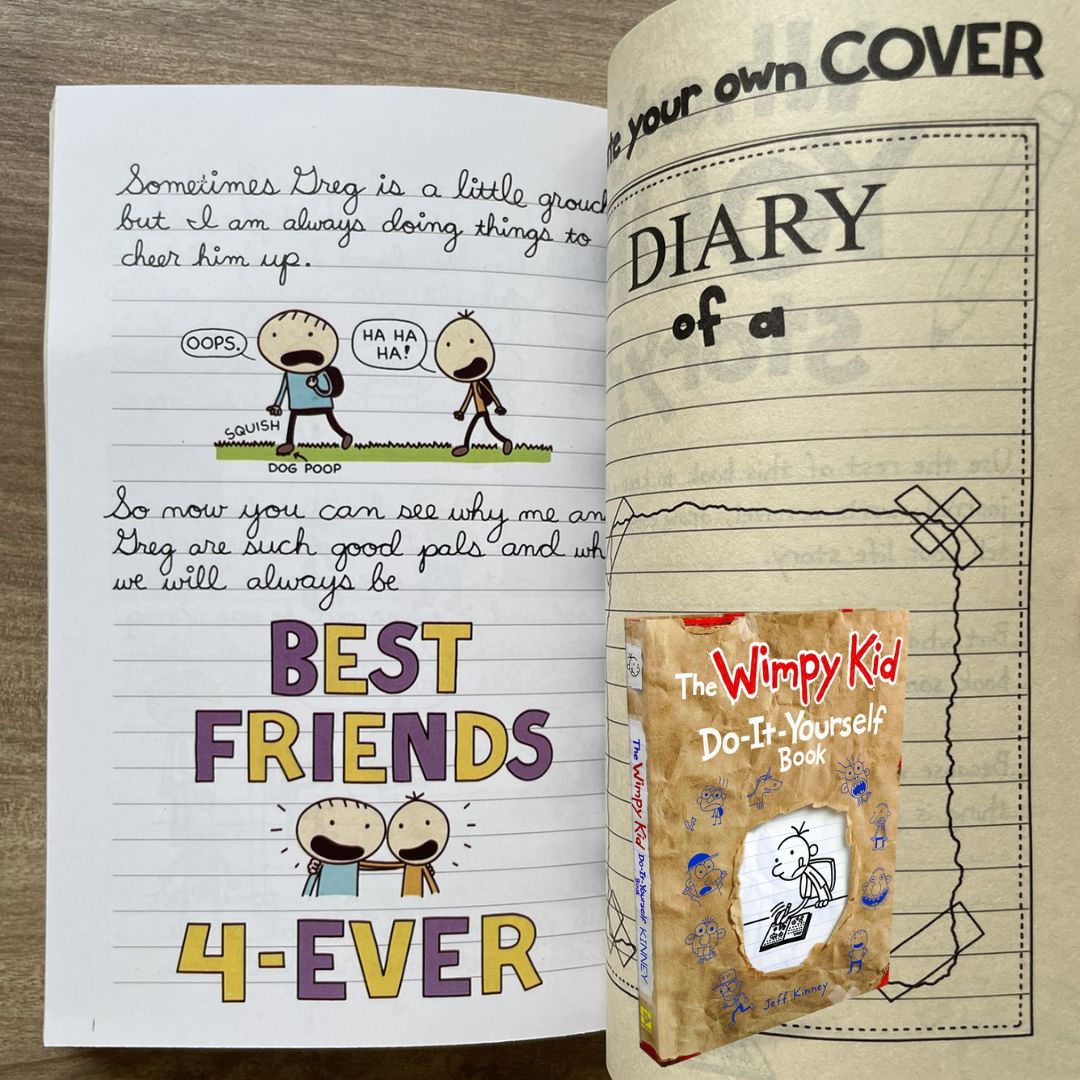 Sometimes Greg is a little
but I am always doing things to
cheer him up.
OOPS.
HA HA
HA!
SQUISH
DOG POOP
So now you can see why me
Greg are such good pals and
we will always be
BEST
FRIENDS
4-EVER
your own COVER
DIARY
of a
The Wimpy Kid
Do-It-Yourself
Book
Jeff Kinney
The Wimpy Kid Do-It-Yourself Book KINNEY